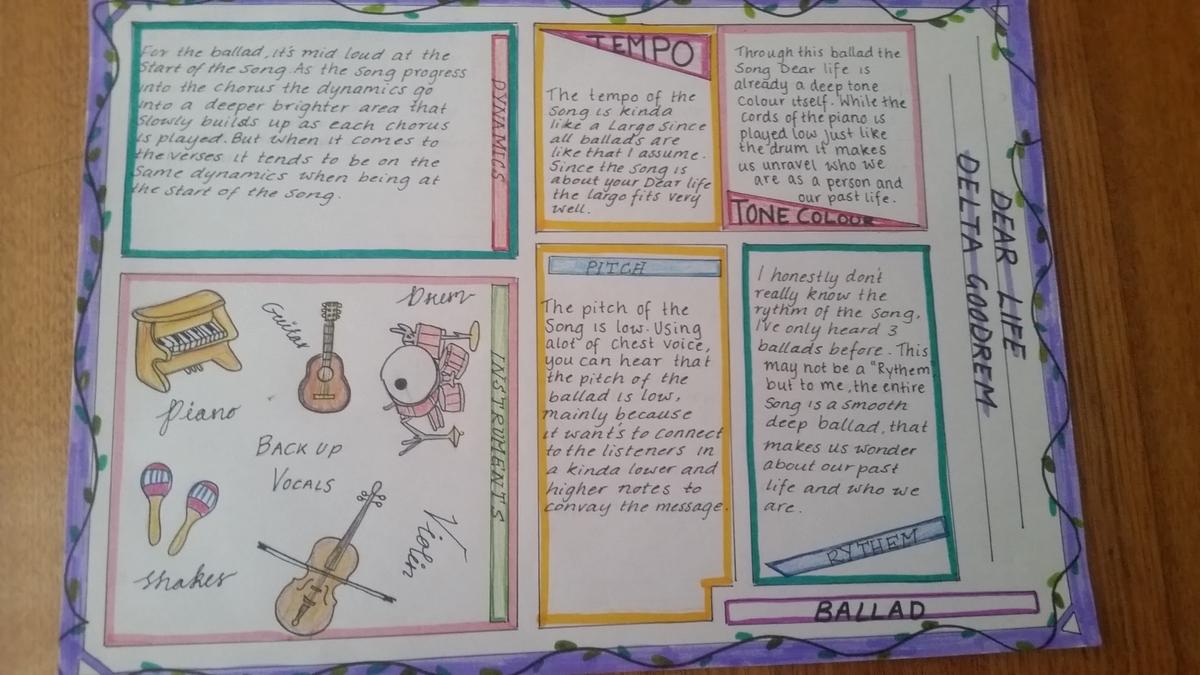 For the ballad, it's mid loud at the
Start of the Song. As the Song progress
into the chorus the dynamics go
into a deeper brighter area that
Slowly builds up as each chorus
is played. But when it comes to
the verses it tends to be on the
Same dynamics when being at
the start of the Song.
DYNAMICS
TEMPO
The tempo of the
Song is kinda
like a Largo Since
all ballads are
like that I assume.
Since the Song is
about your Dear life
the largo fits very
well.
Through this ballad the
Song Dear life is
already a deep tone
colour itself. While the
cords of the piano is
played low just like
the drum it makes
us unravel who we
are as a person and
our past life.
TONE COLOUR
DEAR LIFE
DELTA GOODREM
Piano
Guitar
Drum
BACK UP
VOCALS
Shaker
Violin
INSTRUMENTS
PITCH
The pitch of the
Song is low. Using
alot of chest voice,
you can hear that
the pitch of the
ballad is low,
mainly because
it want's to connect
to the listeners in
a kinda lower and
higher notes to
convay the message.
I honestly don't
really know the
rythm of the Song.
I've only heard 3
ballads before. This
may not be a "Rythem"
but to me, the entire
Song is a smooth
deep ballad, that
makes us wonder
about our past
life and who we
are.
RYTHEM
BALLAD